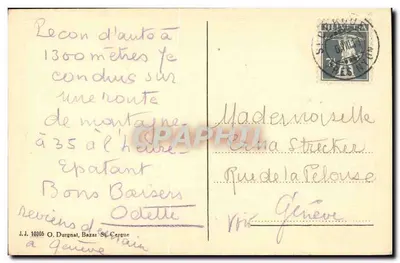 Leçon d'auto à
1300 mètres je
conduis sur
une route
de montagne
à 35 à l'heure
Epatant
Bons Baisers
Odette
reviens demain
à Genève
J.J. 10205 O. Durgnat, Bazar St. Cergue
Mademoiselle
Erna Strecker
Rue de la Pelouse
Genève
CPAPHIL